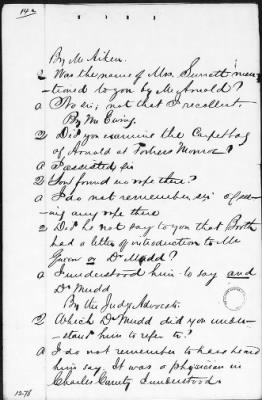 14a
By Mr Aiken.
Q Was the name of Mrs. Surratt men-
tioned to you by Mr Arnold?
a No sir; not that I recollect.
By Mr Ewing.
Q Did you examine the Carpet bag
of Arnold at Fortress Monroe?
a I assisted sir
Q You found no rope there?
a I do not remember sir of see-
ing any rope there
Q Did he not say to you that Booth
had a letter of introduction to Mr
Queen or Dr Mudd?
a I understood him to say and
Dr Mudd
By the Judge Advocate.
Q Which Dr Mudd did you under-
stand him to refer to?
a I do not remember to have heard
him say. It was a physician in
Charles County I understood.
1278